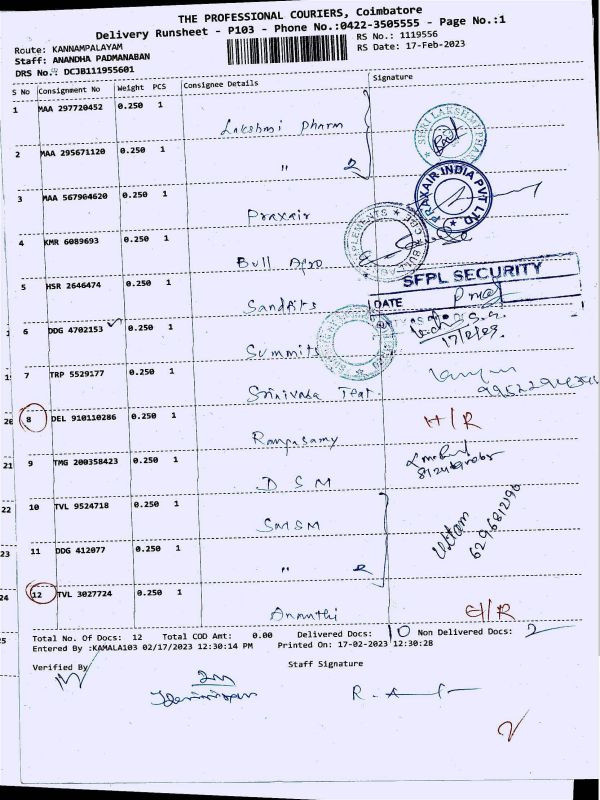 THE PROFESSIONAL COURIERS, Coimbatore
Delivery Runsheet - P103 - Phone No.:0422-3505555 - Page No.:1
Route: KANNAMPALAYAM
RS No.: 1119556
Staff: ANANDHA PADMANABAN
RS Date: 17-Feb-2023
DRS No.: DCJB111955601
S No Consignment No Weight PCS Consignee Details Signature
1 MAA 297720452 0.250 1 Lakshmi Pharm
2 MAA 295671120 0.250 1 " 2
3 MAA 567904620 0.250 1 Praxair
PRAXAIR INDIA PVT LTD
4 KMR 6089693 0.250 1 Bull Agro
5 HSR 2646474 0.250 1 Sandfits
SFPL SECURITY
DATE
6 DDG 4702153 0.250 1 Summits
17/2/23
7 TRP 5529177 0.250 1 Srinivasa
8 DEL 910110286 0.250 1 Rangasamy H/R
9 TMG 200358423 0.250 1 DSM
10 TVL 9524718 0.250 1 SMSM
Uttam
6296812196
11 DDG 412077 0.250 1 " 2
12 TVL 3027724 0.250 1 Ananthi
Total No. Of Docs: 12 Total COD Amt: 0.00 Delivered Docs: 10 Non Delivered Docs: 2
Entered By :KAMALA103 02/17/2023 12:30:14 PM Printed On: 17-02-2023 12:30:28
Verified By
Staff Signature